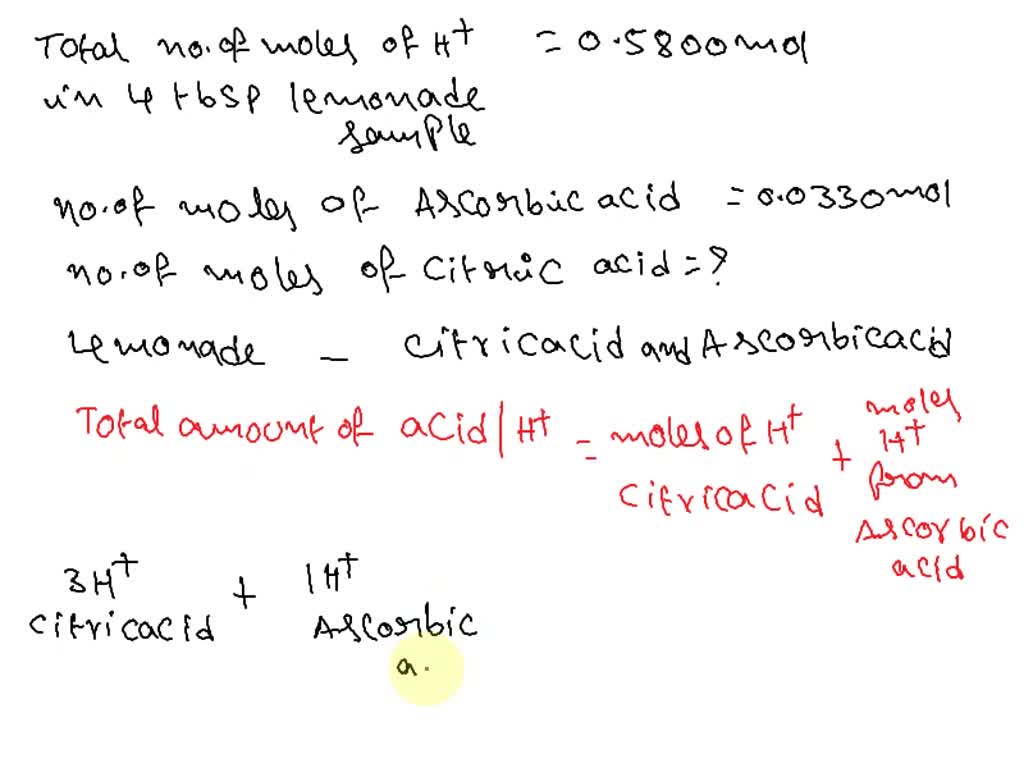 Total no. of moles of H⁺ = 0.5800mol
in 4 tbsp lemonade
sample
no. of moles of Ascorbic acid = 0.0330mol
no. of moles of Citric acid = ?
Lemonade – Citricacid and Ascorbicacid
Total amount of acid | H⁺ = moles of H⁺ Citricacid + moles H⁺ from Ascorbic acid
3H⁺ + 1H⁺
Citricacid Ascorbic
a.